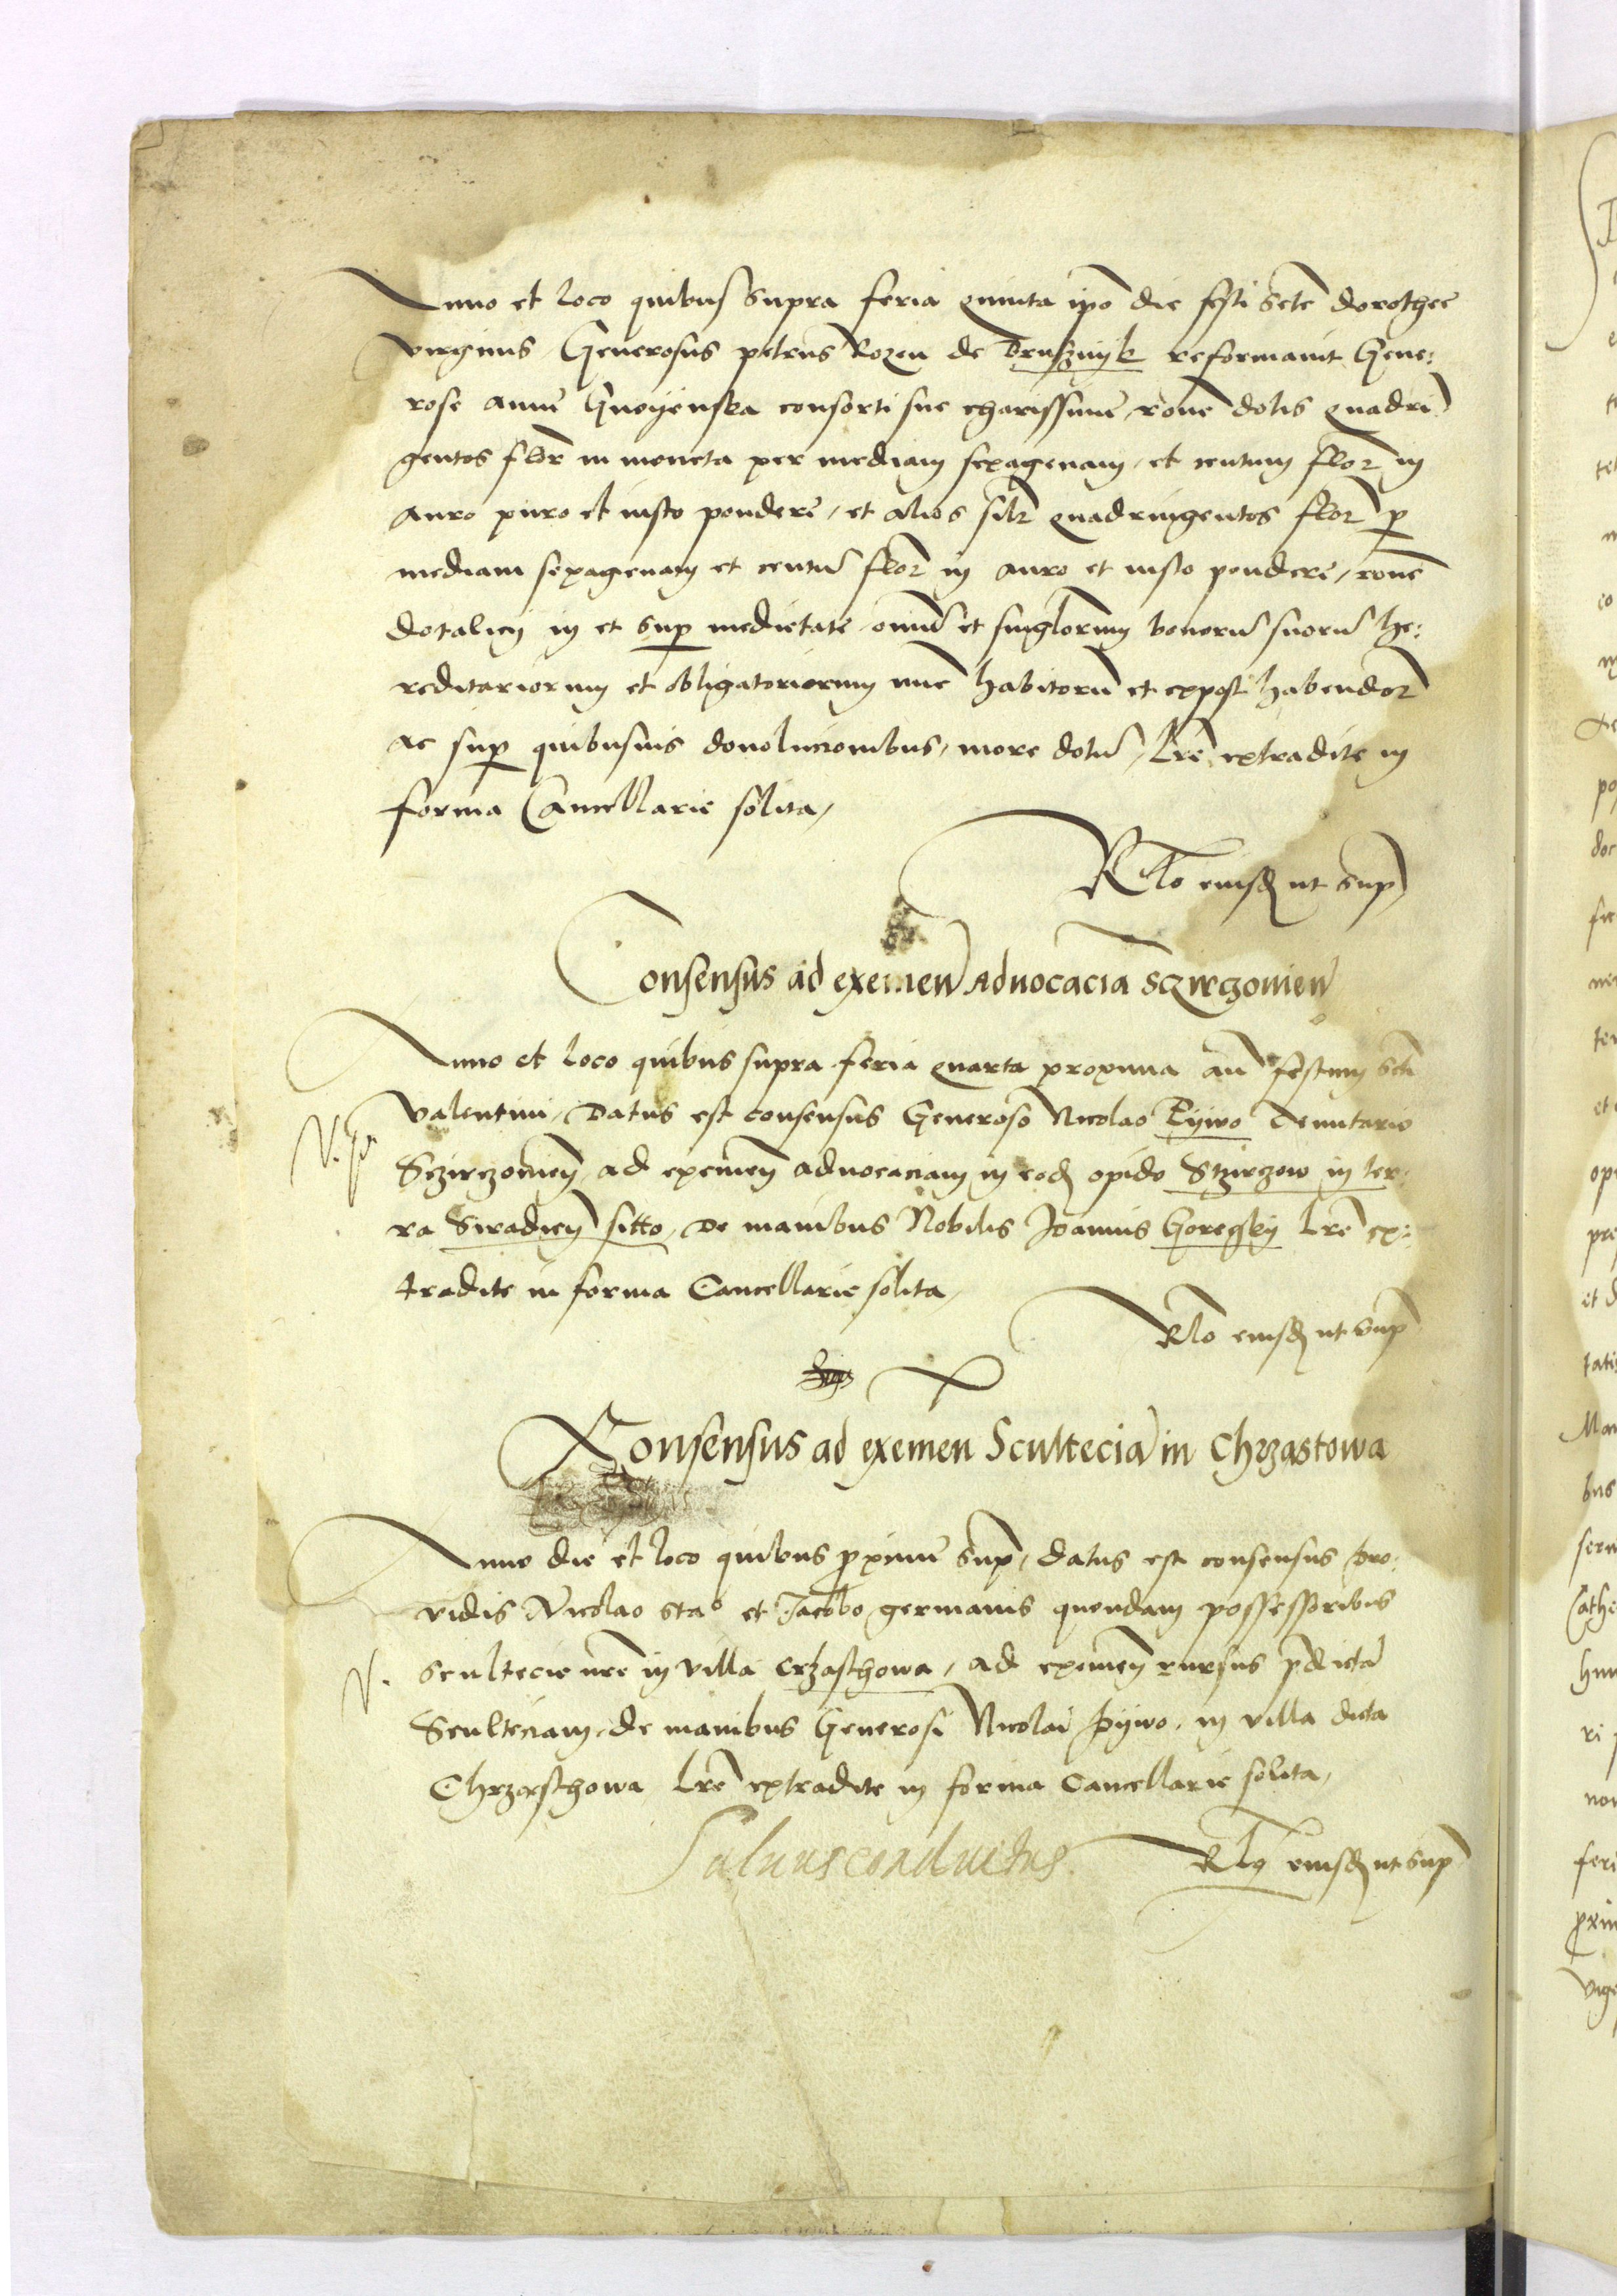 Anno et loco quibus supra feria quinta ipo die festi scte dorothee
virginis Generosus petrus Rozen de Brusznyk reformauit Gene:
rose anne Gnoyenska consorti sue charissime, rone dotis quadrin
gentos flor in moneta per mediam sexagenam, et centum flor in
auro puro et iusto pondere, et alios silr quadringentos flor p
mediam sexagenam et centu flor in auro et iusto pondere, rone
dotalicij in et sup medietate omiu et singlorum bonoru suoru he:
reditariorum et obligatoriorum nunc habitoru et expost habendor
ac sup quibusuis deuolucionibus, more dotiu, Lre extradite in
forma Cancellarie solita,
Rlo eiusd ut sup
Consensus ad eximen aduocacia Sczirczouien
Anno et loco quibus supra feria quarta proxima an festum scti
valentini, Datus est consensus Generoso Nicolao Pywo Tenutario
Sczirczouien, ad eximen aduocaciam in eod opido Sczirczow in ter:
ra Siradien sitto, de manibus Nobilis Joannis Goreczky Lre ex:
tradite in forma Cancellarie solita,
Rlo eiusd ut sup
Consensus ad eximen Scultecia in Chrzastowa
Anno die et loco quibus proxime sup, datus est consensus pro:
vidis Nicolao stao et Jacobo germanis quondam possessoribus
N. scultecie nre in villa Crzasthowa, ad eximen rursus pdicta
Sculteciam, de manibus Generosi Nicolai pywo, in villa dicta
Chrzasthowa Lre extradite in forma Cancellarie solita,
Saluus conductus. Rlo eiusd ut sup